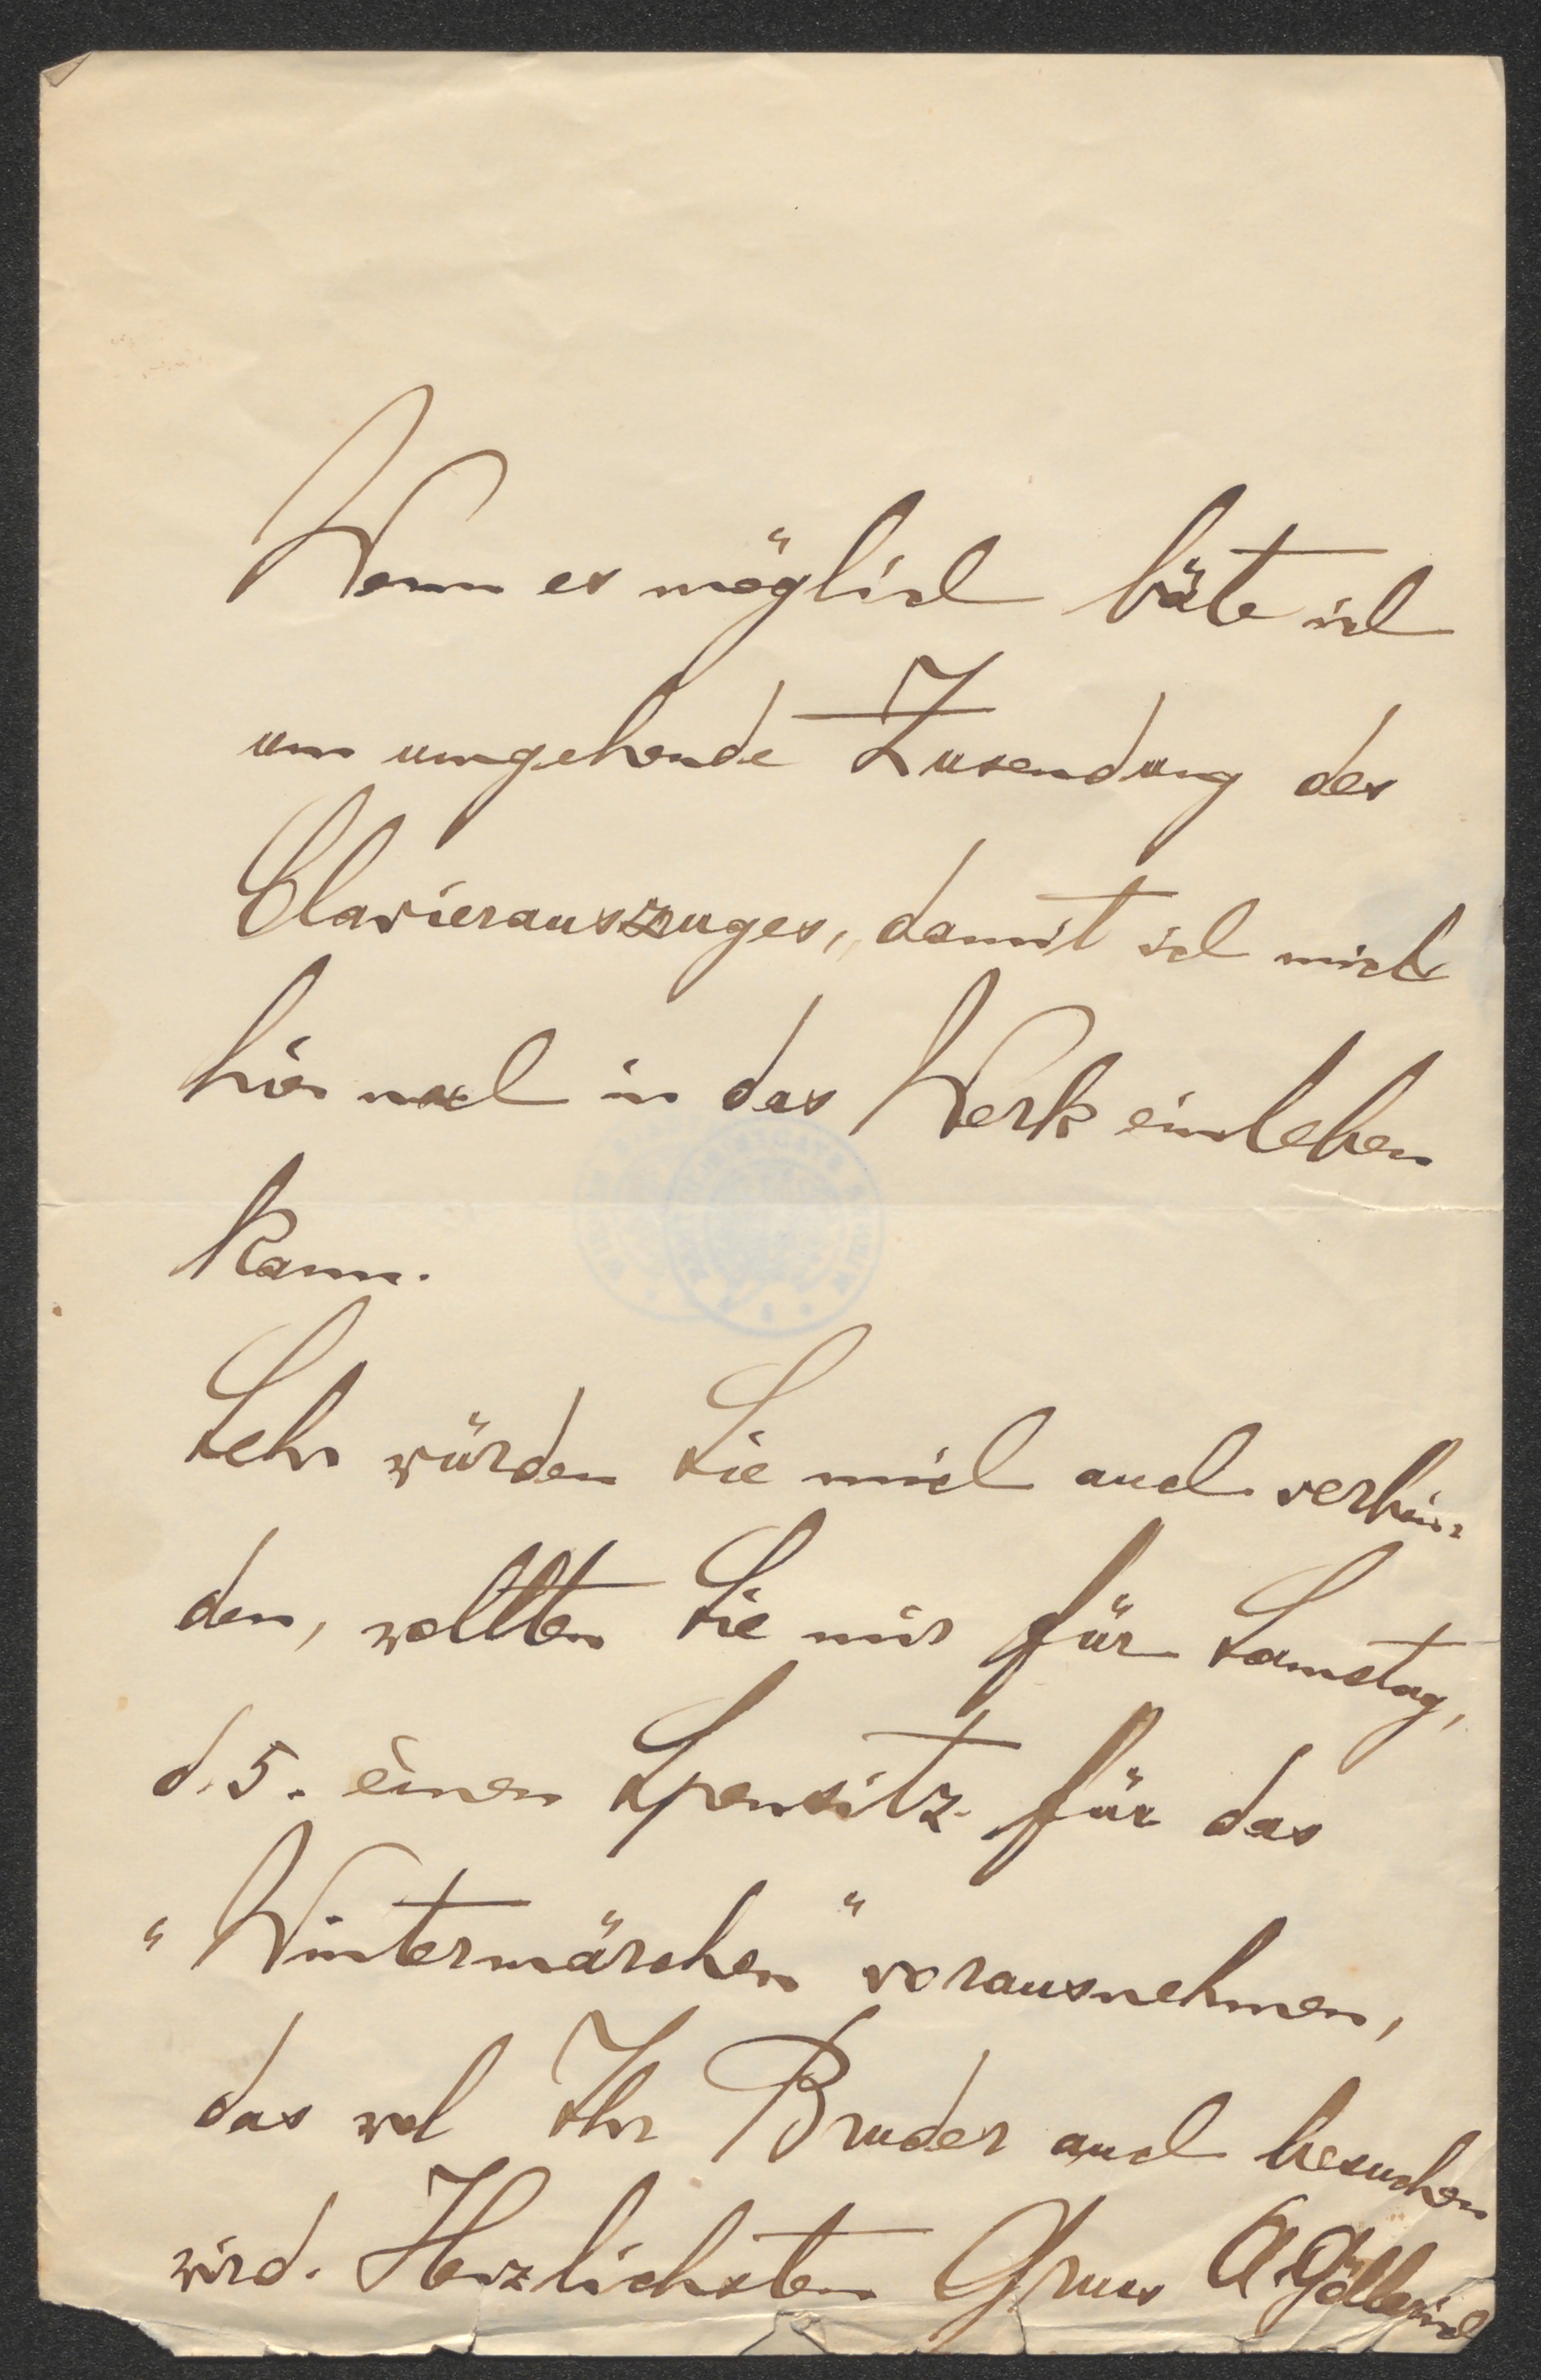 Wenn es möglich bäte ich
um umgehende Zusendung des
Clavierauszuges, damit ich mich
hier noch in das Werk einleben
kann.
Sehr würden Sie mich auch verbin-
den, wollten Sie mir für Samstag,
d. 5. einen Sperrsitz für das
"Wintermärchen" vorausnehmen,
das wol Ihr Bruder auch besuchen
wird. Herzlichsten Gruss A Göllerich